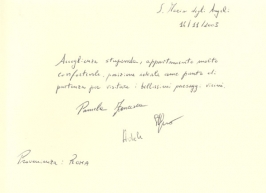 S. Maria degli Angeli
Accoglienza stupenda, appartamento molto
confortevole, posizione ideale come punto di
partenza per visitare i bellissimi paesaggi vicini.
Provenienza: ROMA